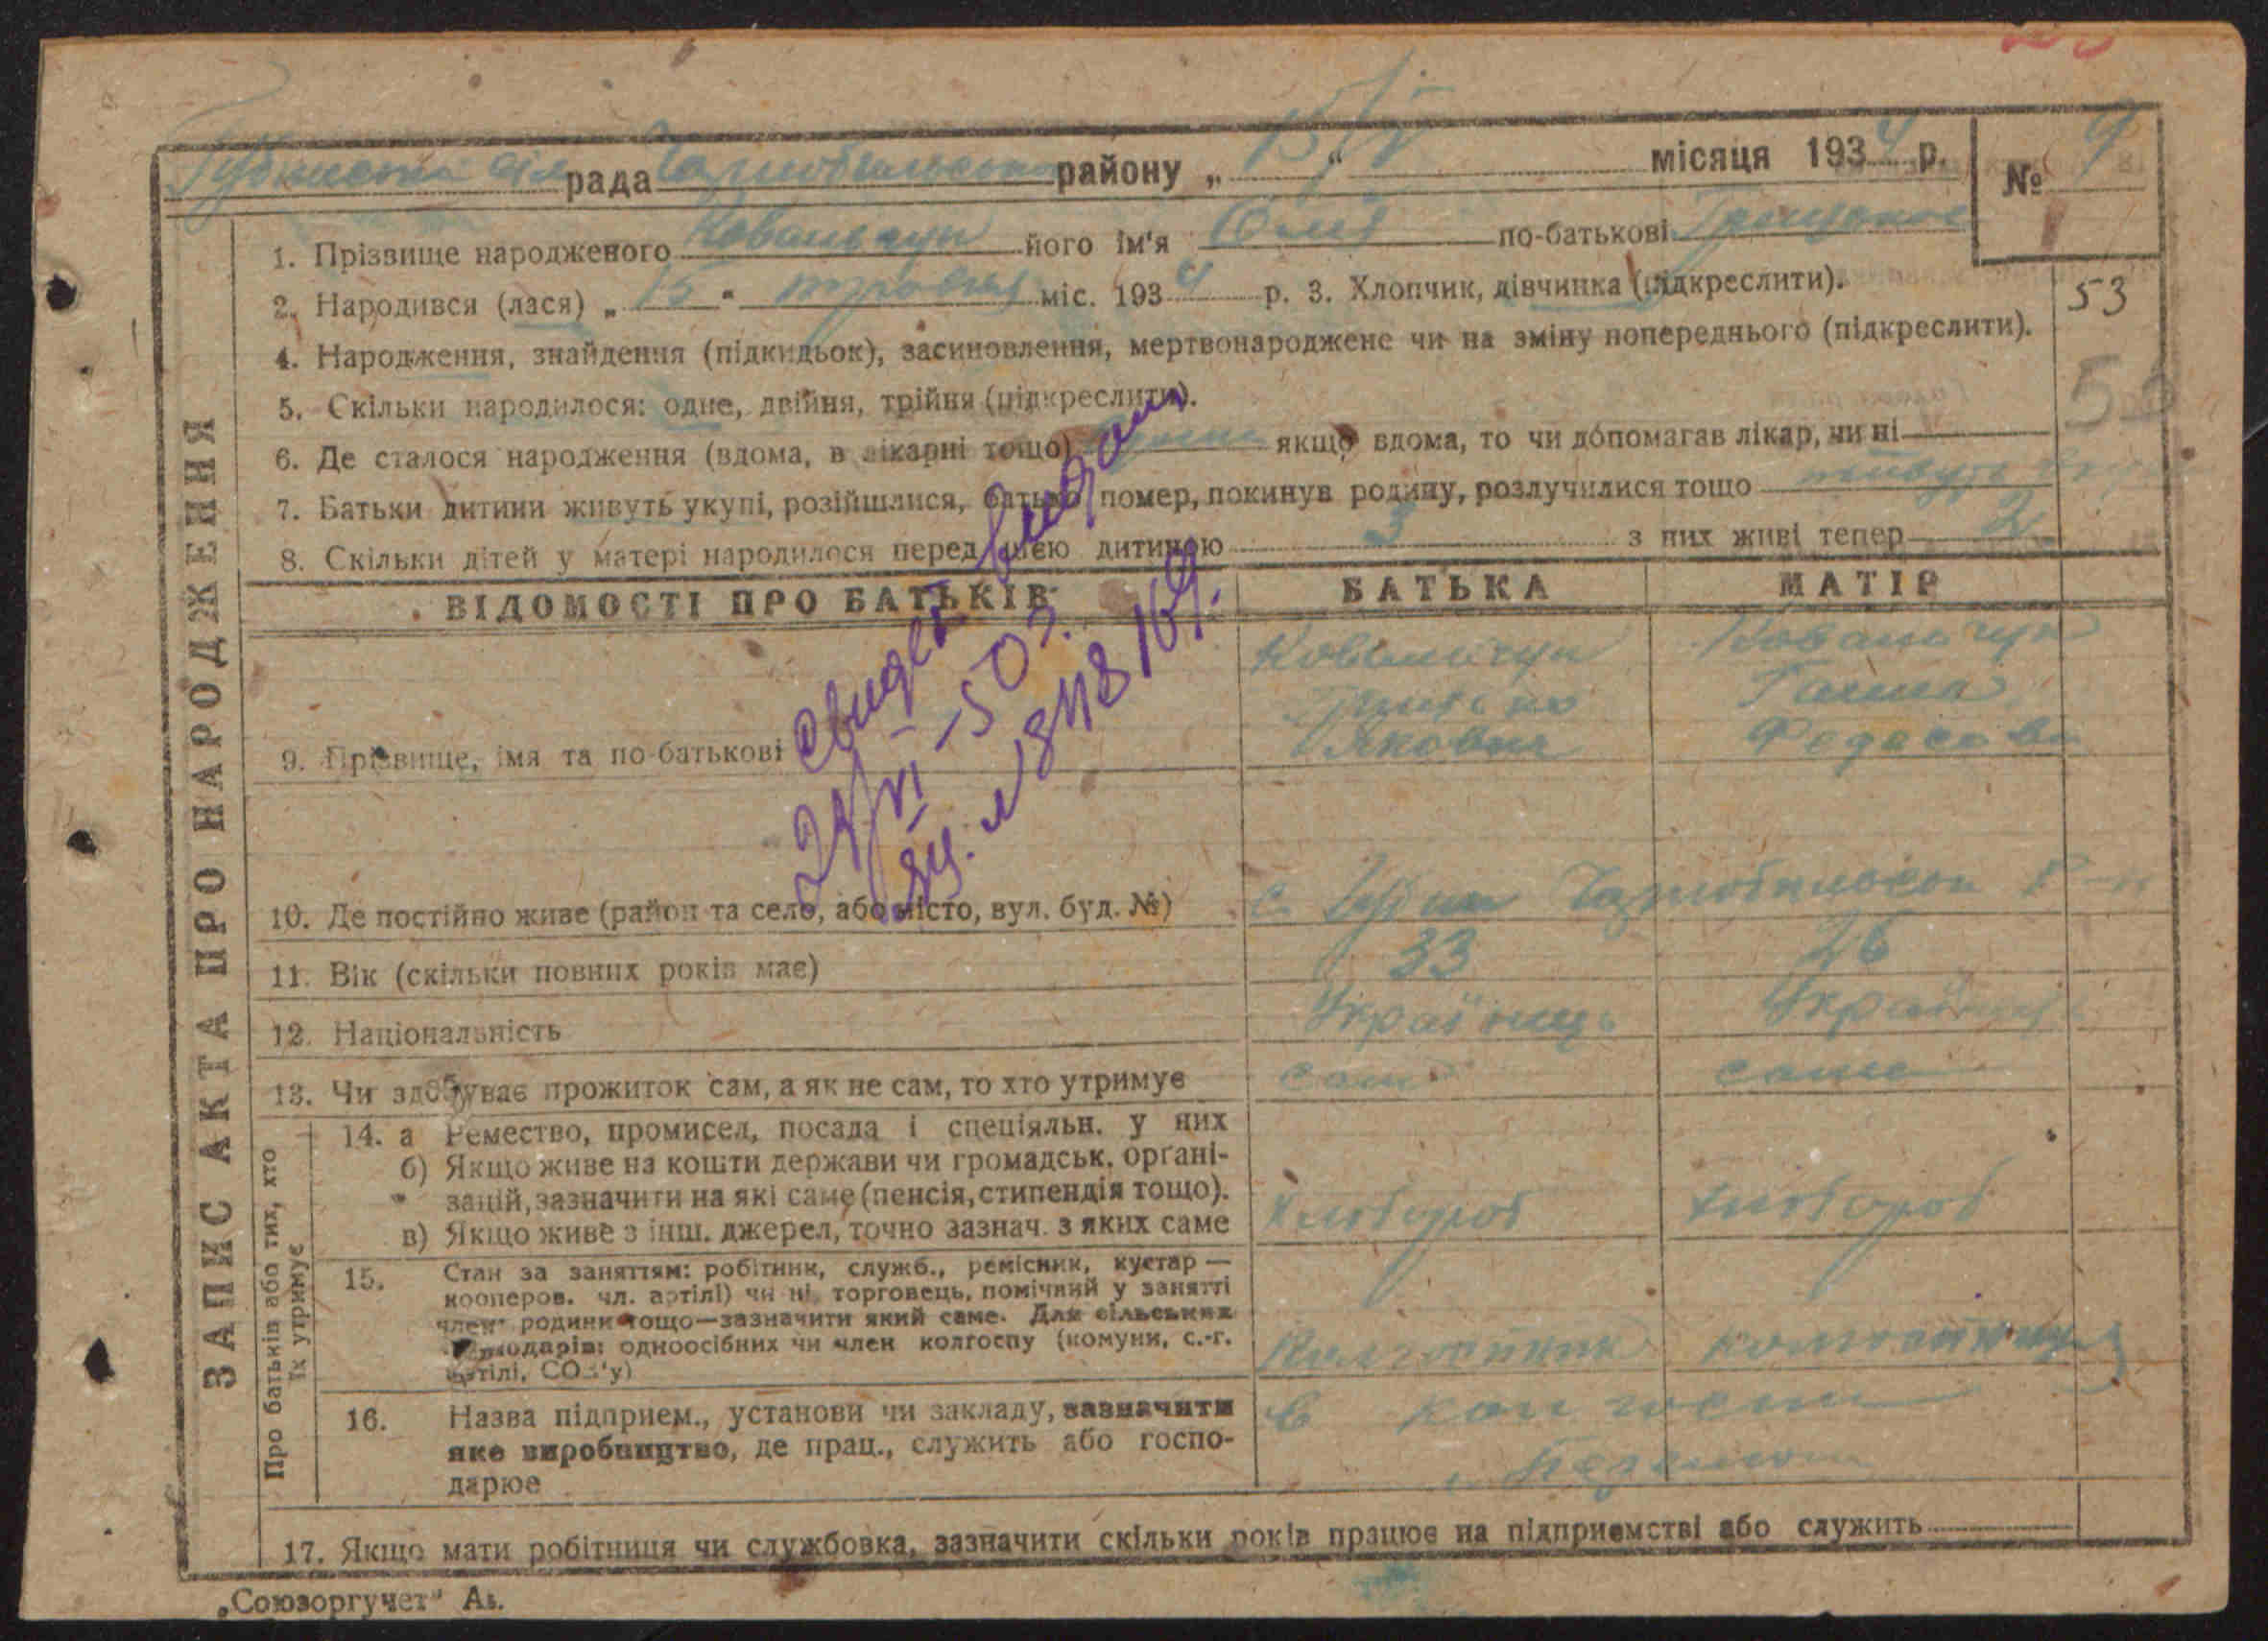 рада Чорнобильского району „ 15/V “ місяця 1934 р. № 9
1. Прізвище народженого Ковальчук його ім'я Юлія по-батькові
2. Народився (лася) „ 15 “ травня міс. 1934 р. 3. Хлопчик, дівчинка (підкреслити).
53
4. Народження, знайдення (підкидьок), засиновлення, мертвонароджене чи на зміну попереднього (підкреслити).
5. Скільки народилося: одне, двійня, трійня (підкреслити).
6. Де сталося народження (вдома, в лікарні тощо) якщо вдома, то чи допомагав лікар, чи ні
7. Батьки дитини живуть укупі, розійшлися, батько помер, покинув родину, розлучилися тощо живуть
8. Скільки дітей у матері народилося перед цією дитиною 3 з них живі тепер 2
ВІДОМОСТІ ПРО БАТЬКІВ БАТЬКА МАТІР
9. Прізвище, імя та по-батькові
Ковальчук Ковальчук
Грицько Ганна
Якович Федосова
свидет. выдано
24/VI-50 г.
10. Де постійно живе (район та село, або місто, вул. буд. №) с. Чорнобильськ Р-н
11. Вік (скільки повних років має) 33 26
12. Національність Українець Українець
13. Чи здобуває прожиток сам, а як не сам, то хто утримує сам саме
14. а Ремество, промисел, посада і спеціяльн. у них
б) Якщо живе на кошти держави чи громадськ. органі-
зацій, зазначити на які саме (пенсія, стипендія тощо).
в) Якщо живе з інш. джерел, точно зазнач. з яких саме Хлібороб хлібороб
15. Стан за заняттям: робітник, служб., ремісник, кустар —
кооперов. чл. артілі) чи ні, торговець, помічний у занятті
член родини тощо—зазначити який саме. Для сільських
господарів: одноосібних чи член колгоспу (комуни, с.-г.
артілі, СОЗ'у) Колгоспник колгоспниця
16. Назва підприєм., установи чи закладу, зазначити
яке виробництво, де прац., служить або госпо-
дарює
в колгоспі
17. Якщо мати робітниця чи службовка, зазначити скільки років працює на підприємстві або служить
ЗАПИС АКТА ПРО НАРОДЖЕННЯ
Про батьків або тих, хто
їх утримує
„Союзоргучет“